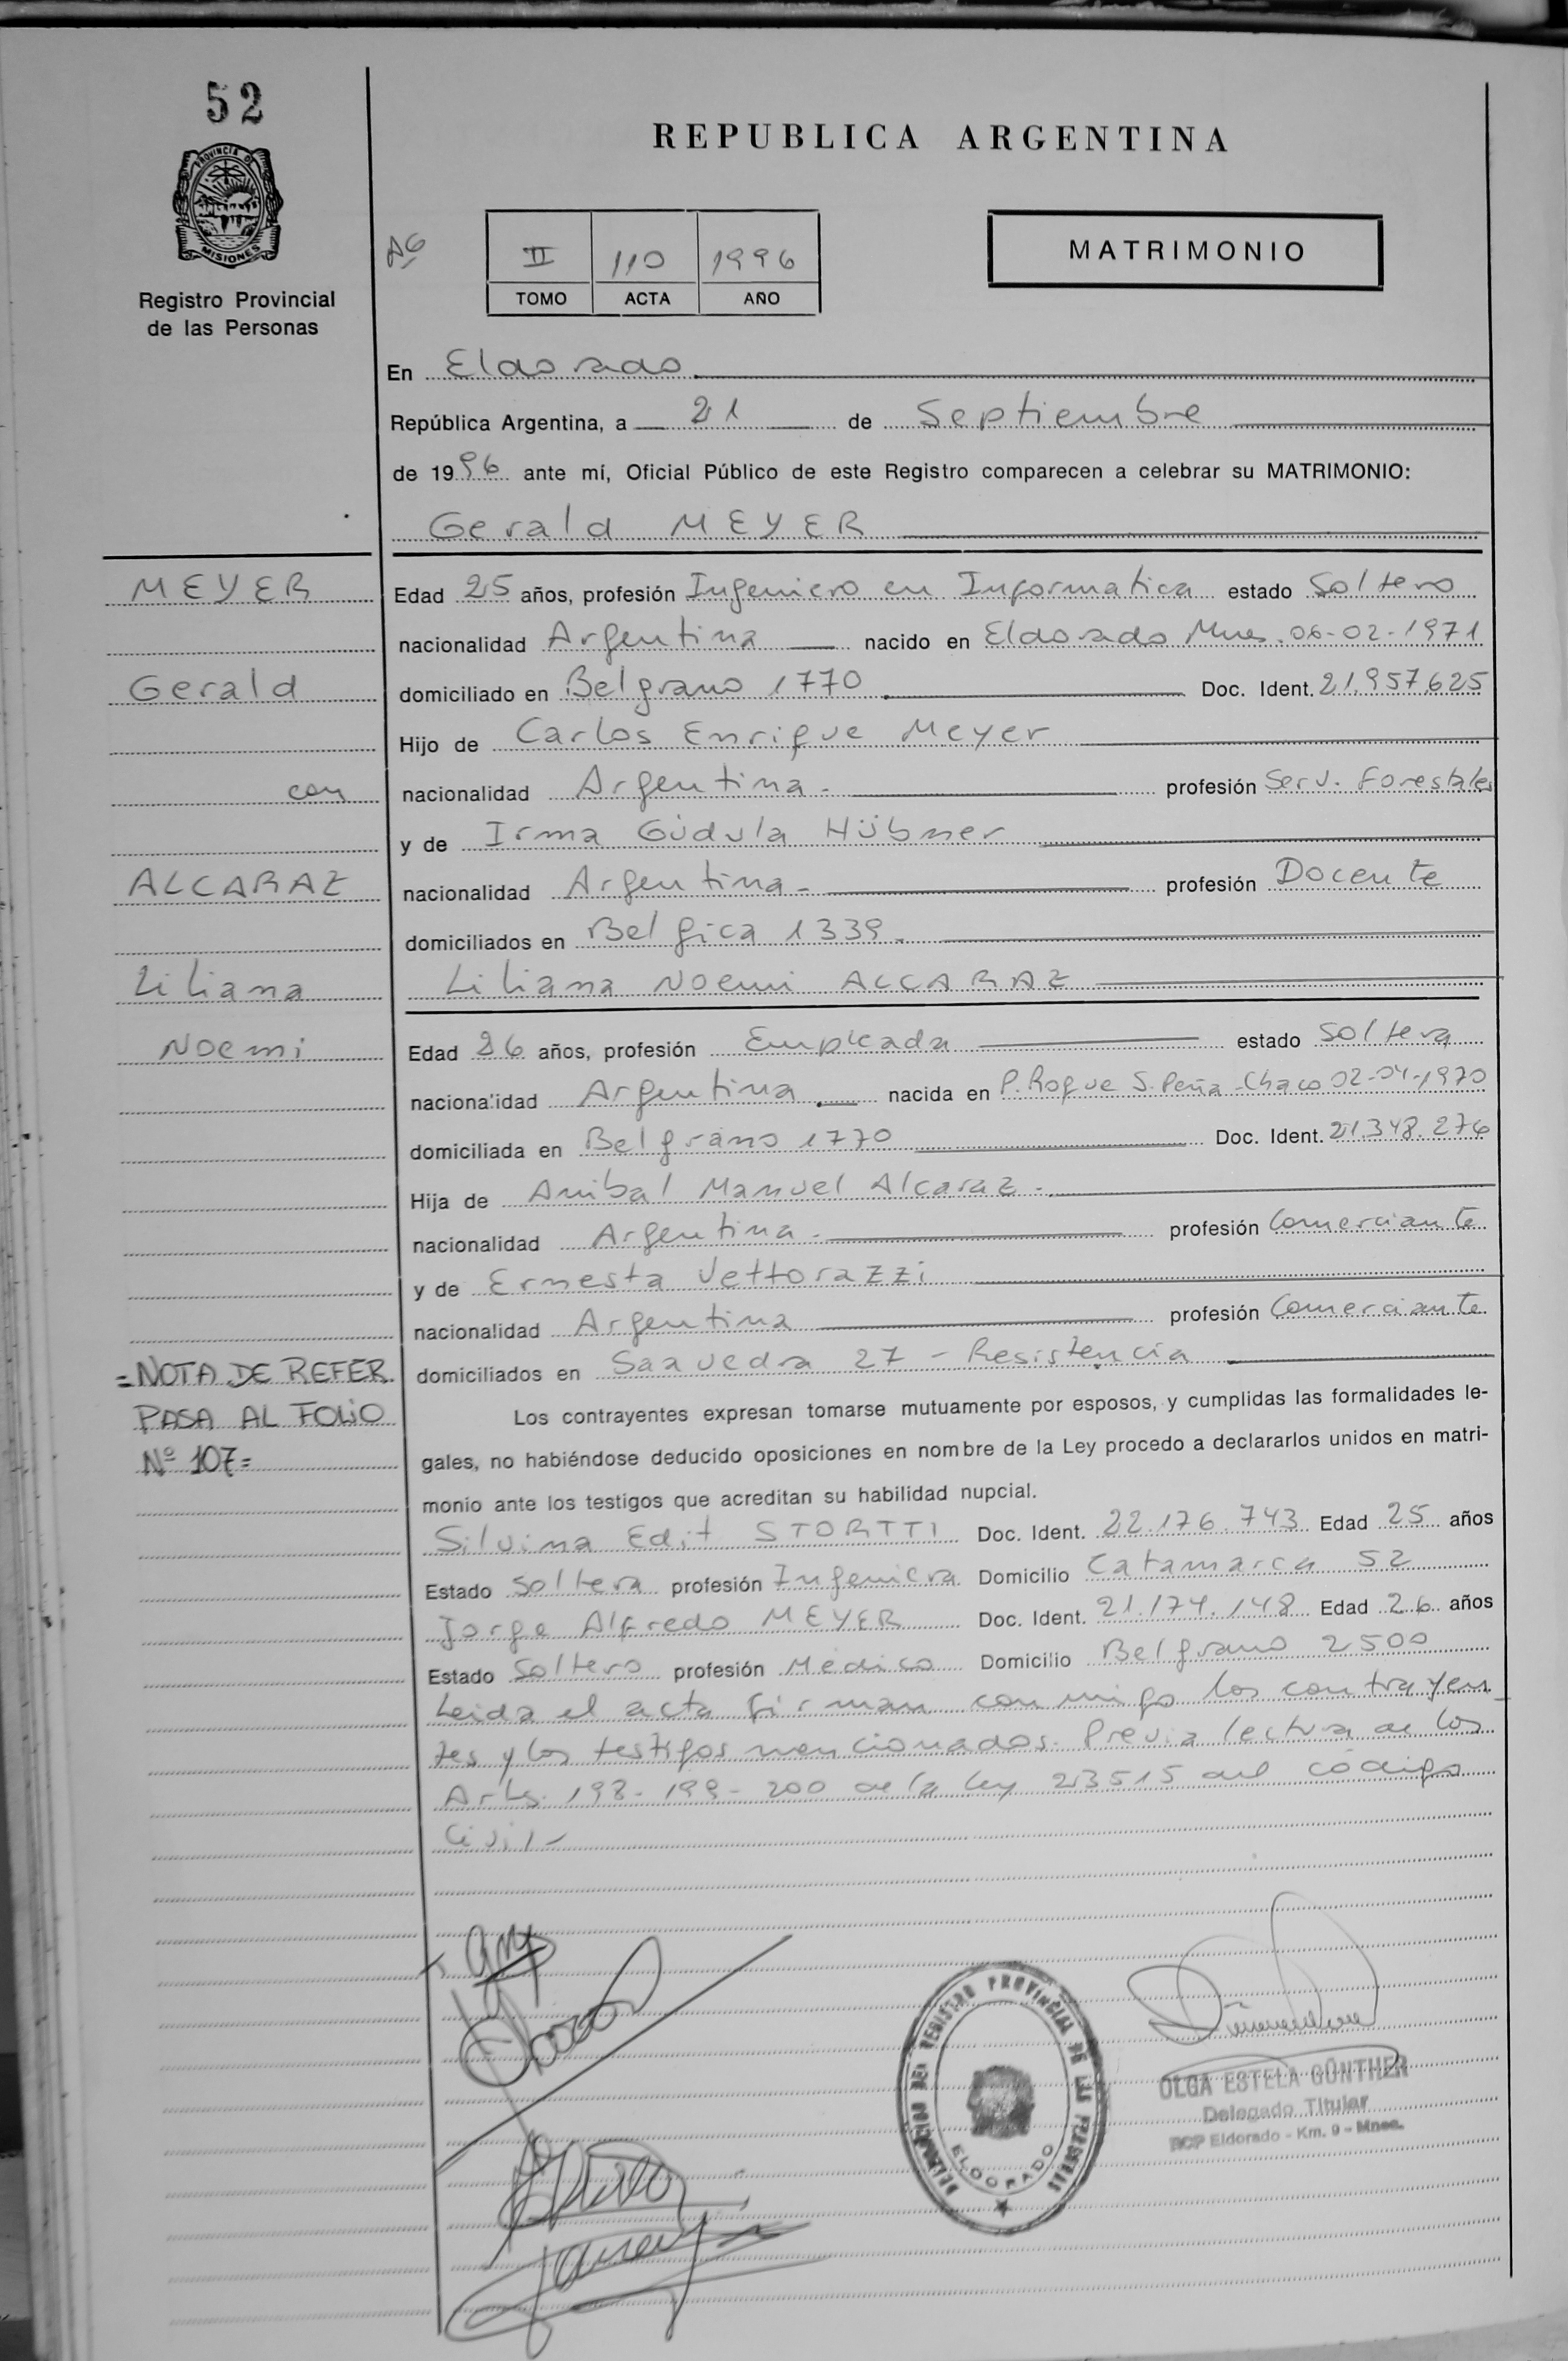 52
PROVINCIA DE
MISIONES
Registro Provincial
de las Personas
REPUBLICA ARGENTINA
II 110 1996
TOMO ACTA AÑO
MATRIMONIO
En Eldorado
República Argentina, a 21 de Septiembre
de 1996 ante mí, Oficial Público de este Registro comparecen a celebrar su MATRIMONIO:
Gerald MEYER
MEYER
Gerald
con
ALCARAZ
Liliana
Noemi
=NOTA DE REFER.
PASA AL FOLIO
Nº 107=
Edad 25 años, profesión Ingeniero en Informatica estado Soltero
nacionalidad Argentina nacido en Eldorado Mnes. 06-02-1971
domiciliado en Belgrano 1770 Doc. Ident. 21.957.625
Hijo de Carlos Enrique Meyer
nacionalidad Argentina.- profesión Serv. Forestales
y de Irma Gúdula Hübner
nacionalidad Argentina.- profesión Docente
domiciliados en Belgica 1339.
Liliana Noemi ALCARAZ
Edad 26 años, profesión Empleada estado Soltera
nacionalidad Argentina nacida en P. Roque S. Peña-Chaco 02-04-1970
domiciliada en Belgrano 1770 Doc. Ident. 21.348.276
Hija de Anibal Manuel Alcaraz.-
nacionalidad Argentina.- profesión Comerciante
y de Ernesta Vettorazzi
nacionalidad Argentina profesión Comerciante
domiciliados en Saavedra 27 - Resistencia
Los contrayentes expresan tomarse mutuamente por esposos, y cumplidas las formalidades le-
gales, no habiéndose deducido oposiciones en nombre de la Ley procedo a declararlos unidos en matri-
monio ante los testigos que acreditan su habilidad nupcial.
Silvina Edit STORTTI Doc. Ident. 22.176.743 Edad 25 años
Estado Soltera profesión Ingeniera Domicilio Catamarca 52
Jorge Alfredo MEYER Doc. Ident. 21.174.148 Edad 26 años
Estado Soltero profesión Médico Domicilio Belgrano 2500
Leida el acta firman con migo los contrayen-
tes y los testigos mencionados. Previa lectura de los
Arts. 198-199-200 de la ley 23515 del código
Civil-
DELEGACION DEL REGISTRO PROVINCIAL DE LAS PERSONAS
ELDORADO
OLGA ESTELA GÜNTHER
Delegado Titular
RCP Eldorado - Km. 9 - Mnes.